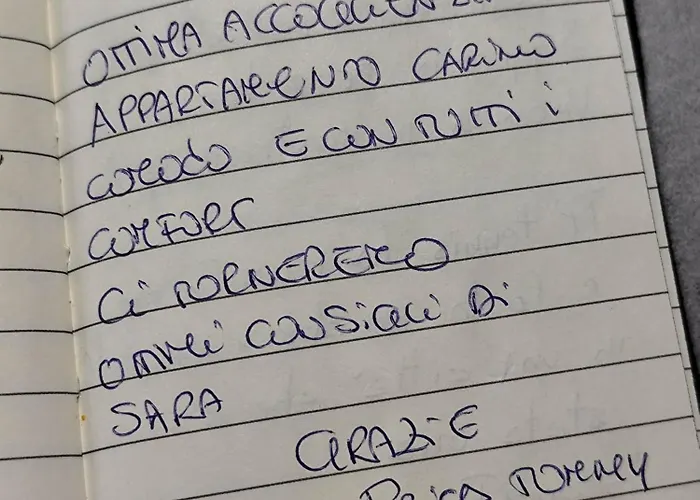 OTTIMA ACCOGLIENZA
APPARTAMENTO CARINO
COMODO E CON TUTTI i
COMFORT
Ci TORNEREMO
OTTIMI CONSIGLI DI
SARA
GRAZIE
TOMMY